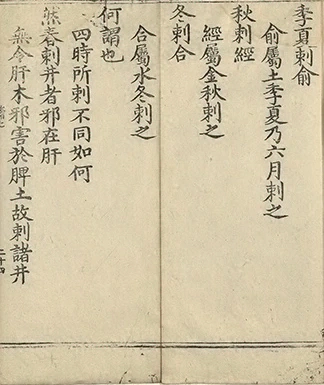 季夏刺俞
俞屬土季夏乃六月刺之
秋刺經
經屬金秋刺之
冬刺合
合屬水冬刺之
何謂也
四時所刺不同如何
然春刺井者邪在肝
無令肝木邪害於脾土故刺諸井
二十四